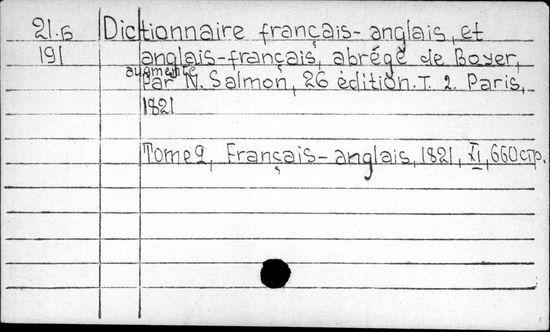 21.б Dictionnaire français-anglais, et
191 anglais-français, abrégé de Boyer,
augmenté
par N. Salmon, 26 édition. T. 2. Paris,
1821
Tome 2, Français-anglais, 1821, XI, 660 стр.